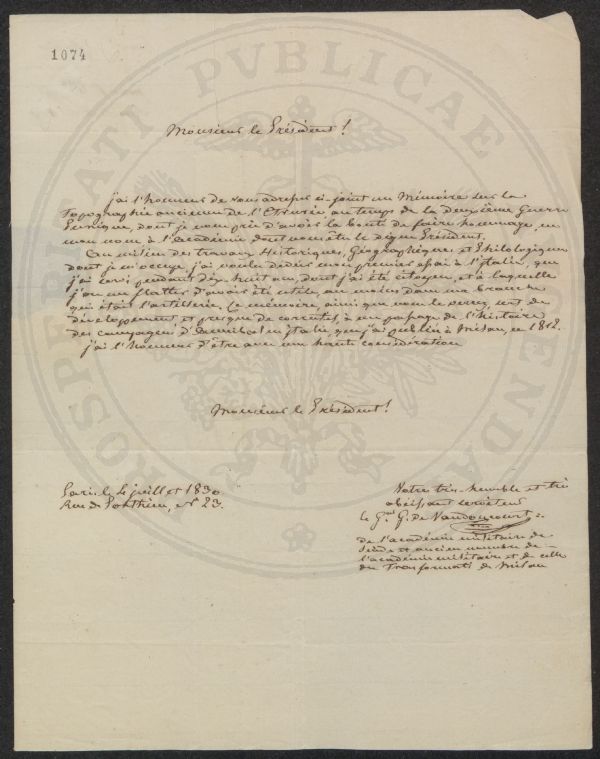 1074
Monsieur le Président!
j'ai l'honneur de vous adresser ci-joint un Mémoire sur la
Topographie ancienne de l'Etrurie au temps de la deuxième Guerre
Punique, dont je vous prie d'avoir la bonté de faire hommage, en
mon nom à l'Académie dont vous êtes le digne Président.
Au milieu des travaux Historiques, Géographiques et Philologiques
dont je m'occupe j'ai voulu dédier mon premier essai à l'Italie, que
j'ai servi pendant dix huit ans, dont j'ai été citoyen, et à laquelle
j'ose me flatter d'avoir été utile, au moins dans ma branche
qui était l'artillerie. Ce mémoire, ainsi que vous le verrez, sert de
développement et presque de correctif à un passage de l'histoire
des campagnes d'Annibal en italie que j'ai publiée à Milan, en 1812.
j'ai l'honneur d'être avec une haute considération
Monsieur le Président!
Paris le 4 juillet 1830
Rue de Ponthieu, N° 23.
Votre très-humble et très
obéissant serviteur
Le Gal G. de Vaudoncourt
de l'académie militaire de
Suède et ancien membre de
l'académie militaire et de celle
des Trasformati de Milan
PROSPERITATI PVBLICAE